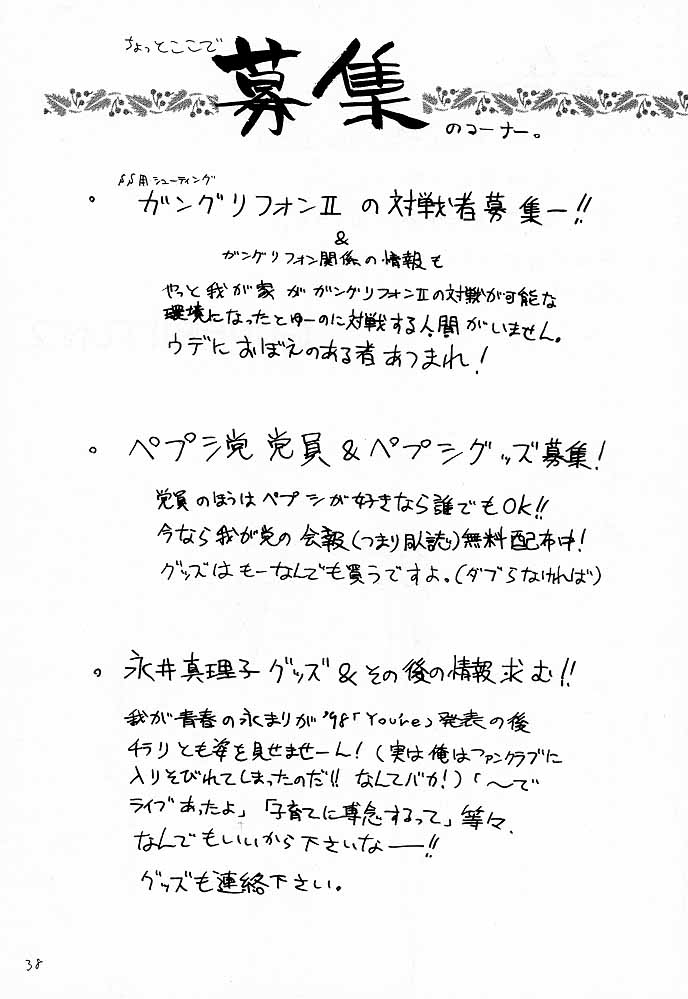 ちょっとここで
募集
のコーナー。
SS用シューティング
。ガングリフォンⅡ の対戦者募集ー!!
&
ガングリフォン関係の情報も
やっと我が家がガングリフォンⅡの対戦が可能な
環境になったとゆーのに対戦する人間がいません。
ウデにおぼえのある者あつまれ!
。ペプシ党 党員&ペプシグッズ募集!
党員のほうはペプシが好きなら誰でもOK!!
今なら我が党の会報(つまり同人誌)無料配布中!
グッズはもーなんでも買うですよ。(ダブらなければ)
。永井真理子グッズ&その後の情報求む!!
我が青春の永まりが'98「You're」発表の後
チラリとも姿を見せませーん!(実は俺はファンクラブに
入りそびれてしまったのだ!!なんてバカ!)「〜で
ライブあったよ」「子育てに専念するって」等々、
なんでもいいから下さいなー!!
グッズも連絡下さい。
38